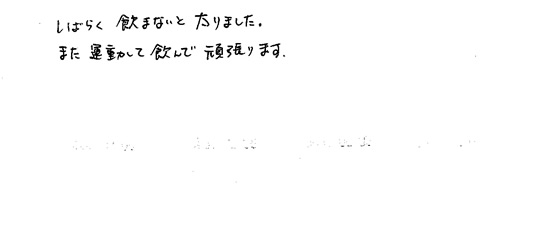 しばらく 飲まないと 太りました。
また 運動して 飲んで 頑張ります.